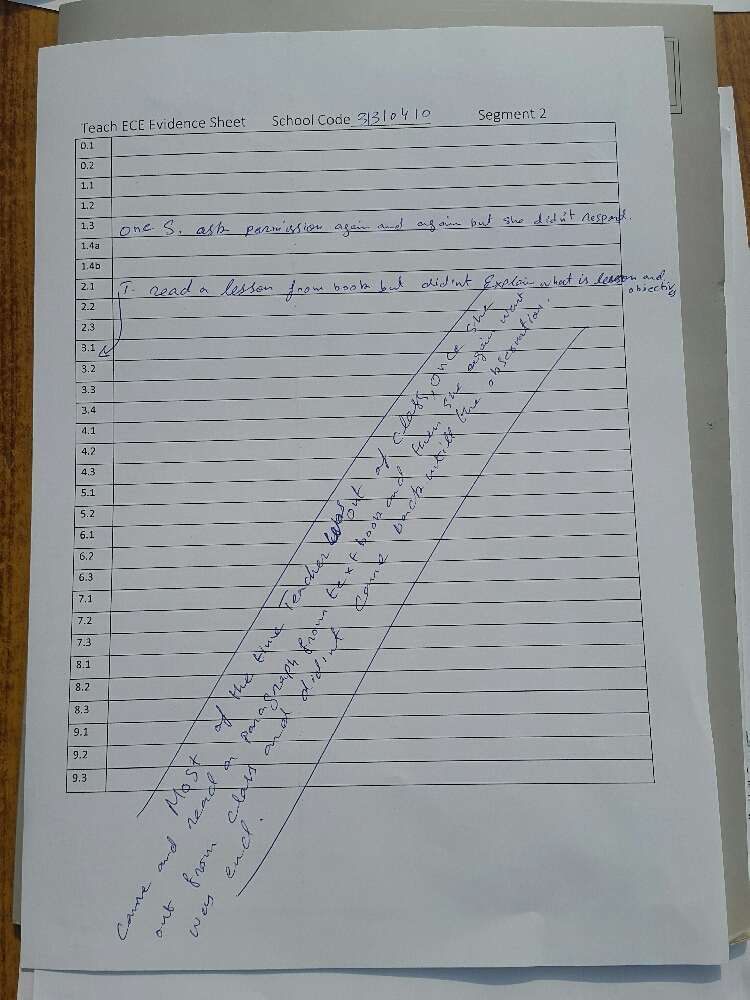 Teach ECE Evidence Sheet School Code 3/3/0410 Segment 2
0.1
0.2
1.1
1.2
1.3 One S. ask permission again and again but she didn't respond.
1.4a
1.4b
2.1 T. read a lesson from book but didnt Explain what is lesson and
objectives
2.2
2.3
3.1 N
3.2
3.3
3.4
4.1
4.2
4.3
5.1
5.2
6.1
6.2
6.3
7.1
7.2
7.3
8.1
8.2
8.3
9.1
9.2
9.3
Most of the time Teacher was out of class, once she
came and read a paragraph from text book and then she again went
out from class and didint came back untill the observation
was end.